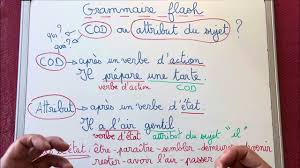 Grammaire flash
qui? quoi?
COD ou attribut du sujet ?
COD → après un verbe d'action
Il prépare une tarte.
verbe d'action COD
Attribut → après un verbe d'état.
Il a l'air gentil
verbe d'état attribut du sujet "il"
état : être - paraître - sembler - demeurer - devenir
rester - avoir l'air - passer